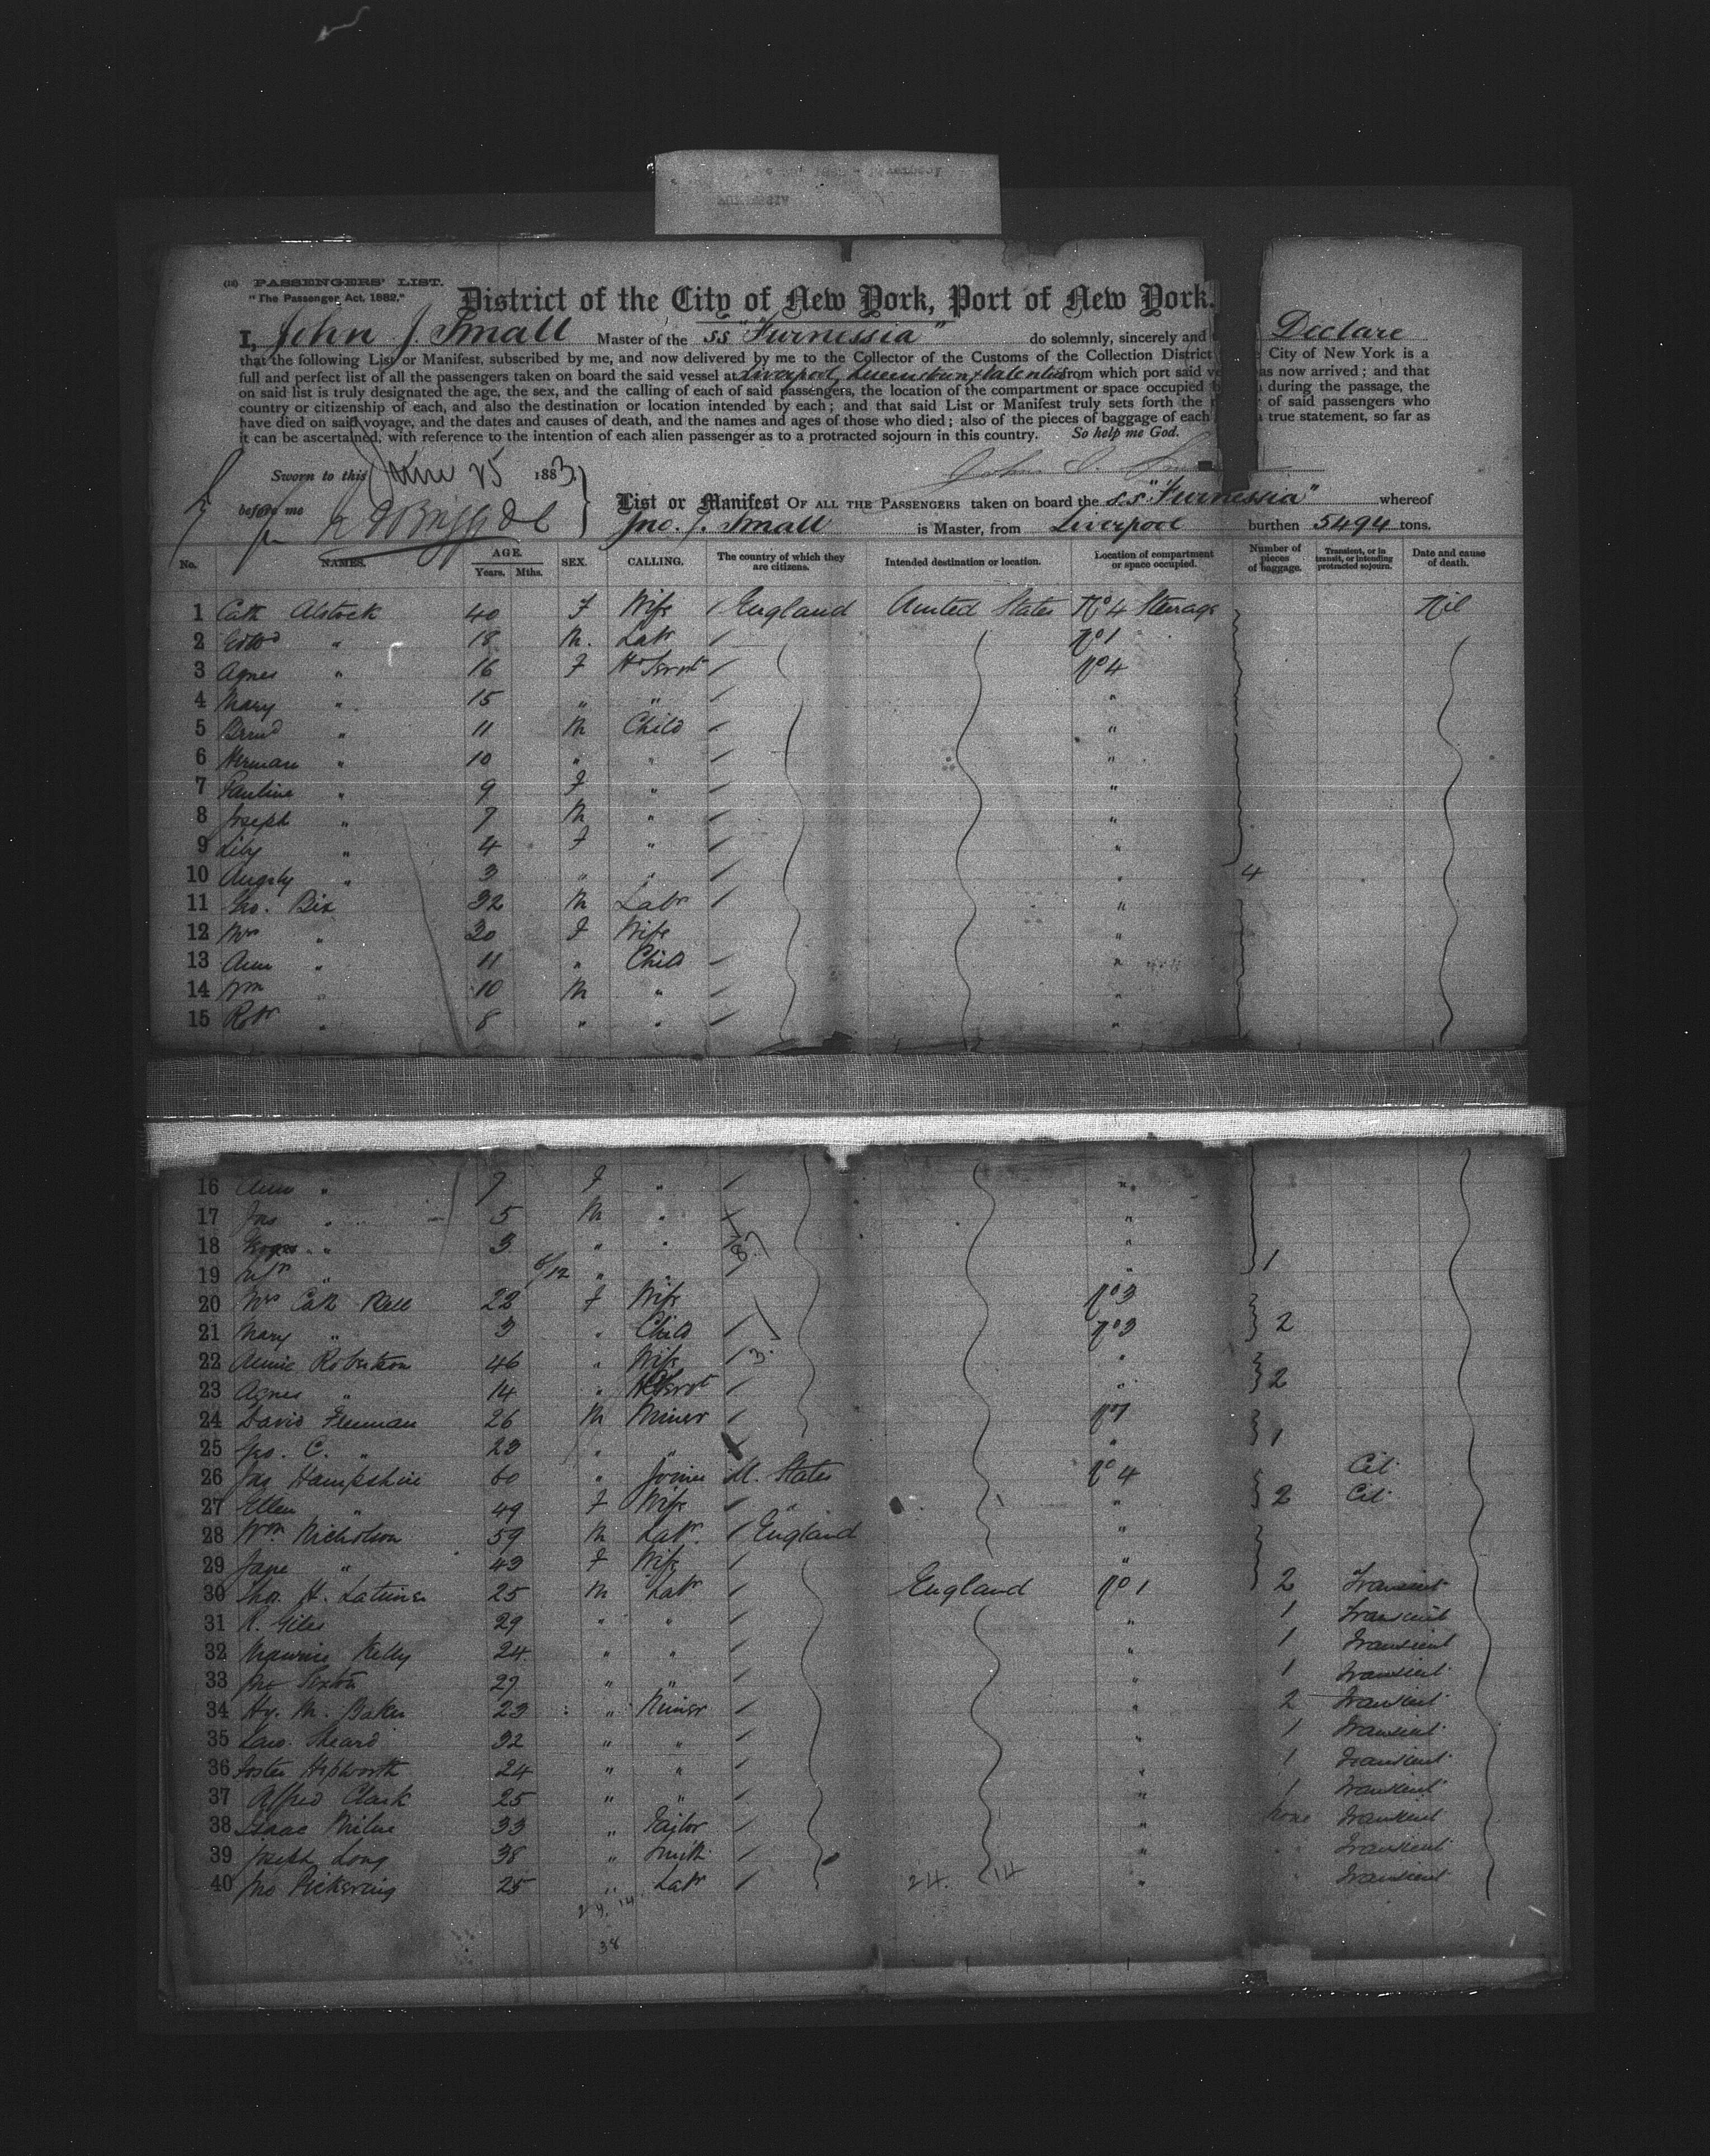 (12) PASSENGERS' LIST.
"The Passenger Act, 1882."
District of the City of New York, Port of New York.
I, John J. Small Master of the SS "Furnessia" do solemnly, sincerely and Declare
that the following List or Manifest, subscribed by me, and now delivered by me to the Collector of the Customs of the Collection District City of New York is a
full and perfect list of all the passengers taken on board the said vessel at Liverpool, Queenstown & from which port said as now arrived; and that
on said list is truly designated the age, the sex, and the calling of each of said passengers, the location of the compartment or space occupied during the passage, the
country or citizenship of each, and also the destination or location intended by each; and that said List or Manifest truly sets forth the of said passengers who
have died on said voyage, and the dates and causes of death, and the names and ages of those who died; also of the pieces of baggage of each true statement, so far as
it can be ascertained, with reference to the intention of each alien passenger as to a protracted sojourn in this country. So help me God.
Sworn to this June 25 1883
before me
List or Manifest OF ALL THE PASSENGERS taken on board the S.S "Furnessia" whereof
Jno. J. Small is Master, from Liverpool burthen 5494 tons.
No. NAMES. AGE. Years. Mths. SEX. CALLING. The country of which they are citizens. Intended destination or location. Location of compartment or space occupied. Number of pieces of baggage. Transient, or in transit, or intending protracted sojourn. Date and cause of death.
1 Cath Alstock 40 F Wife England United States No 4 Steerage Nil
2 Edwd " 18 M. Labr No 1
3 Agnes " 16 F Ho Servt No 4
4 Mary " 15 " " "
5 Bernd " 11 M Child "
6 Herman " 10 " " "
7 Pauline " 9 F " "
8 Joseph " 7 M " "
9 Lily " 4 F " "
10 " 3 " " " 4
11 Jno. Bix 32 M Labr "
12 Mrs " 30 F Wife "
13 Ann " 11 " Child "
14 Wm " 10 M " "
15 Robt " 8 " " "
16 Ann " 7 F " "
17 Jas " 5 M " "
18 " 3 " " "
19 " 6/12 " " " 1
20 Mrs Cath Bell 22 F Wife No 3
21 Mary " 3 " Child No 3 2
22 Annie Robertson 46 " Wife 3 "
23 Agnes " 14 " Ho Servt " 2
24 David 26 M Miner No 1
25 Jno. C. " 23 " " " 1
26 Jas Hampshire 60 " Joiner U. States No 4 Cit
27 Ellen " 49 F Wife " " 2 Cit
28 Wm Nicholson 59 M Labr. England "
29 Jane " 43 F Wife "
30 Thos. H. 25 M Labr England No 1 2 Transient
31 R. Giles 29 " " " 1 Transient
32 Kelly 24 " " " 1 Transient
33 Jno Sexton 27 " " " 1 Transient
34 Hy. M. Baker 23 " Miner " 2 Transient
35 Law. Sheard 32 " " " 1 Transient
36 Foster Hepworth 24 " " " 1 Transient
37 Alfred Clark 25 " " " 1 Transient
38 Isaac Milne 33 " Tailor " None Transient
39 Joseph Long 38 " Smith " " Transient
40 Jno Pickering 25 " Labr 24. 14 " Transient
24, 14
38